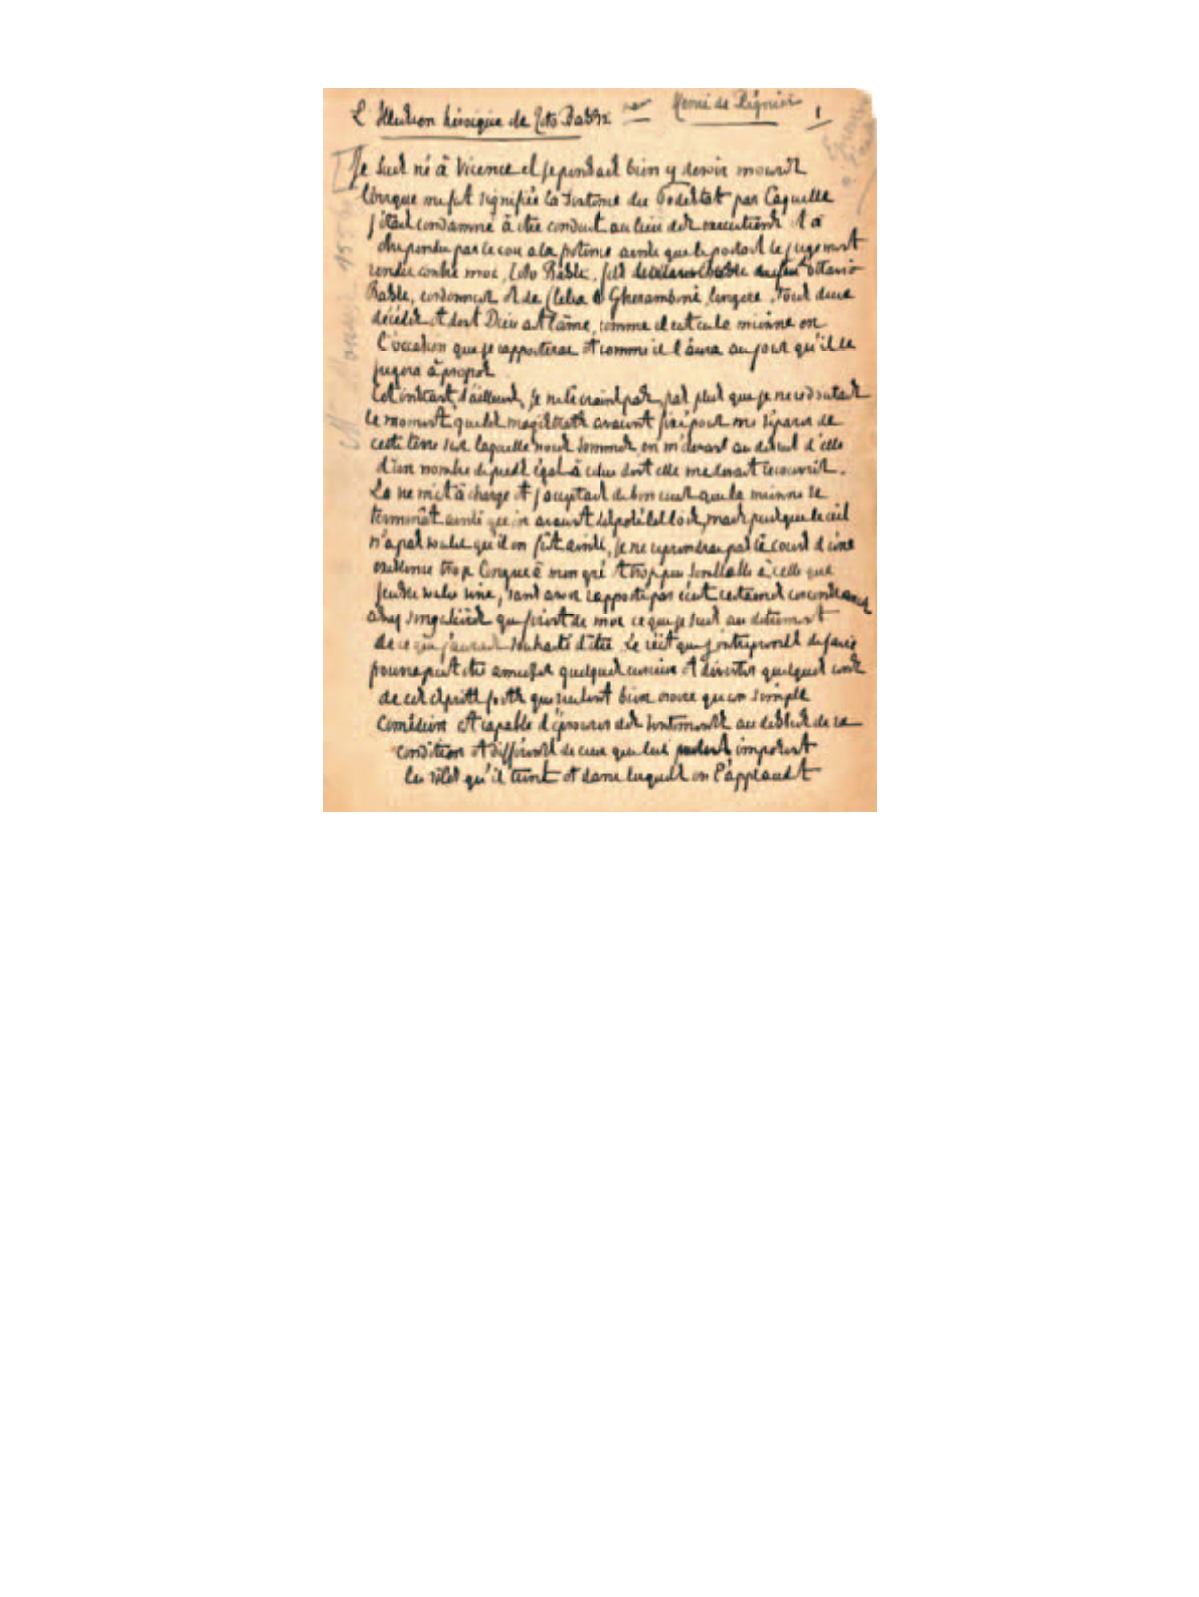 L'Illusion héroïque de Tito Bassi par Henri de Régnier 1
Je suis né à Vicence et je pensais bien y devoir mourir
lorsque me fut signifiée la sentence du Podestat par laquelle
j'étais condamné à être conduit au lieu des exécutions et à
être pendu par le cou à la potence ainsi que le portait le jugement
rendu contre moi, Tito Bassi, fils Ottavio
Bassi, cordonnier et de Clelia Gherambini, lingère, tous deux
décédés et dont Dieu ait l'âme, comme il eut cru la mienne en
l'occasion que je rapporterai et comme il l'aura au jour qu'il le
jugera à propos.
Cet instant, d'ailleurs, je ne le crains pas, pas plus que je ne redoutais
le moment que les magistrats avaient fixé pour me séparer de
cette terre sur laquelle nous sommes, en m'élevant au dessus d'elle
d'un nombre de pieds égal à celui dont elle me devait recouvrir.
La vie m'est à charge et j'acceptais de bon cœur que la mienne se
terminât ainsi qu'en avaient disposé les lois, mais puisque le ciel
n'a pas voulu qu'il en fût ainsi, je ne reprendrai pas le cours d'une
existence trop longue à mon gré et trop peu semblable à celle que
j'eusse voulu vivre, sans avoir rapporté par écrit certaines circonstances
assez singulières qui firent de moi ce que je suis au détriment
de ce que j'aurais souhaité d'être. Le récit que j'entreprends de faire
pourra peut être amuser quelques curieux et divertir quelques uns
de ces esprits forts qui veulent bien croire qu'un simple
comédien est capable d'éprouver des sentiments au dessus de sa
condition et différents de ceux que lui imposent
les rôles qu'il tient et dans lesquels on l'applaudit